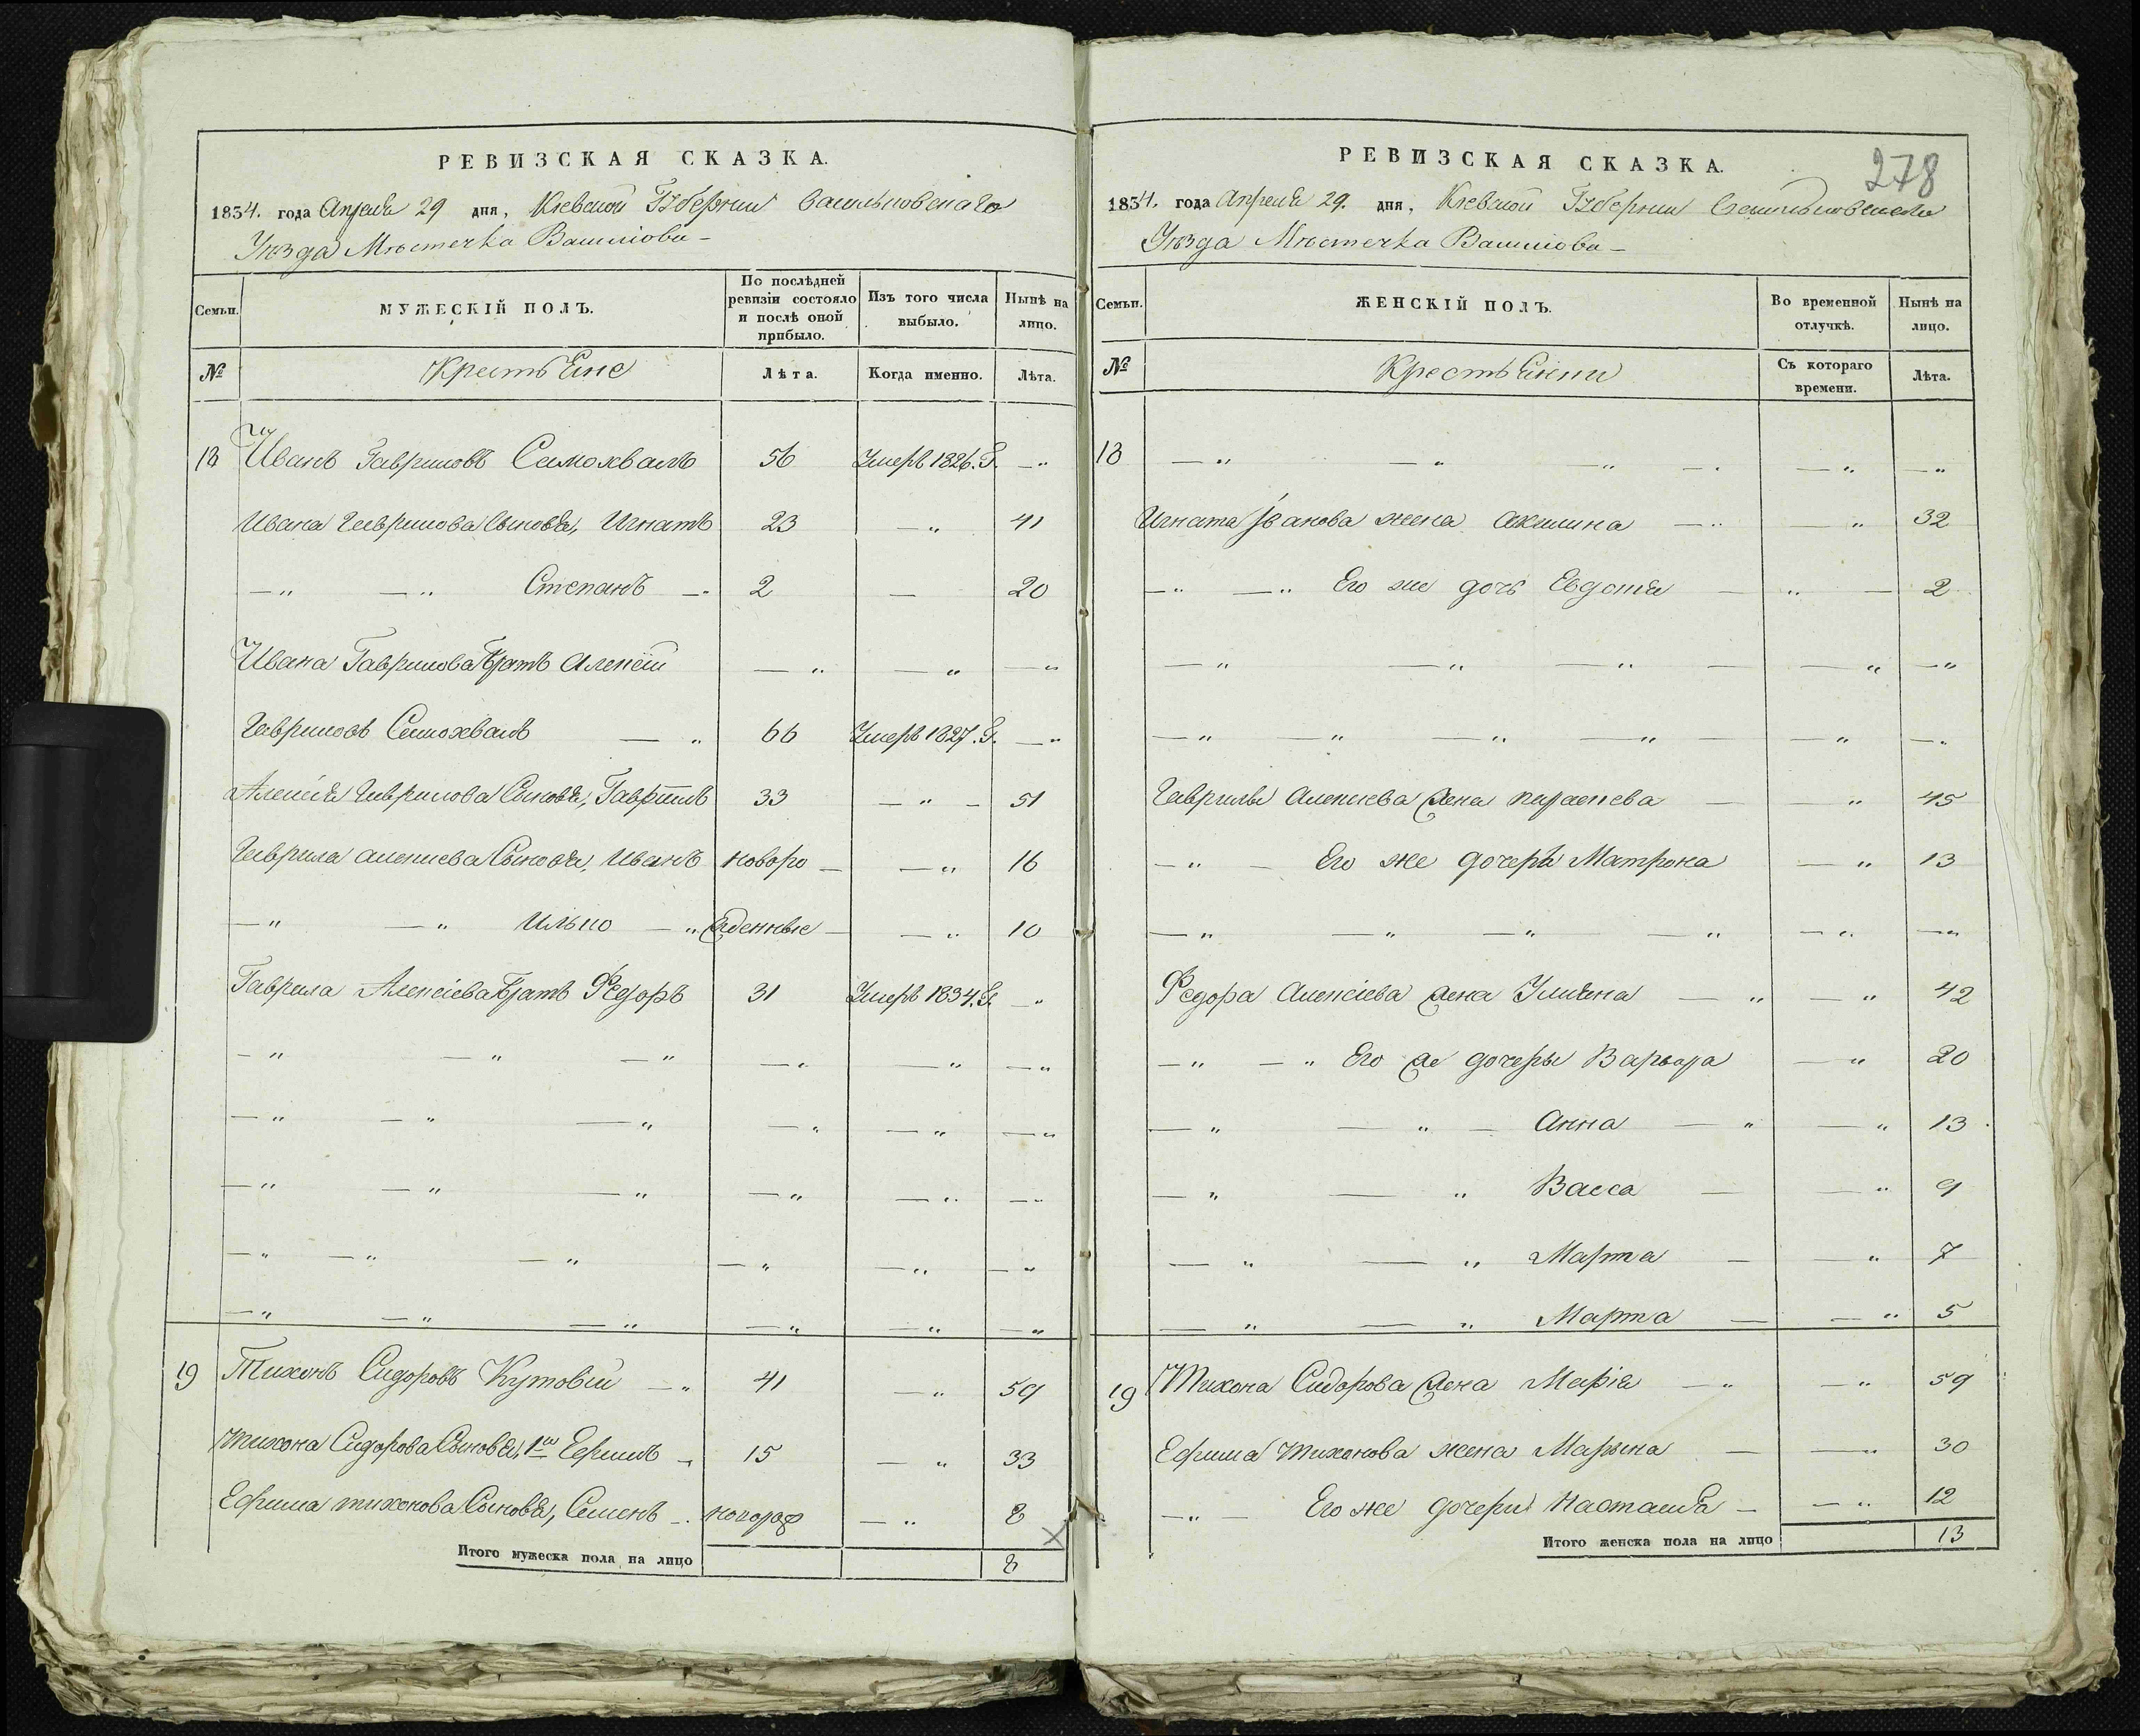 РЕВИЗСКАЯ СКАЗКА.
1834. года Апреля 29 дня, Киевской Губернии Васильковскаго
Уѣзда Мѣстечка
Семьи. МУЖЕСКІЙ ПОЛЪ. По послѣдней ревизіи состояло и послѣ оной прибыло. Изъ того числа выбыло. Нынѣ на лицо.
№ Крестьяне Лѣта. Когда именно. Лѣта.
18 Иванъ Гавриловъ Самохвалъ 56 Умеръ 1826. Г. — "
Ивана Гаврилова Сыновья, Игнатъ 23 — " 41
— " — " Степанъ — " 2 — 20
Ивана Гаврилова братъ Алексѣй — " — " — "
Гавриловъ Самохвалъ — " 66 Умеръ 1827. Г. — "
Алексія Гаврилова Сыновья, Гаврiилъ 33 — " — 51
Гаврила Алексіева Сыновья, Иванъ новоро — — " 16
— " — " Илько — " жденные — — " 10
Гаврила Алексіева братъ Федоръ 31 Умеръ 1834. Г. — "
— " — " — " — " — " — "
— " — " — " — " — " — "
— " — " — " — " — " — "
— " — " — " — " — " — "
— " — " — " — " — " — "
19 Тихонъ Сидоровъ Кутовій — " 41 — " 59
Тихона Сидорова Сыновья, 1й Ефимъ — 15 — " 33
Ефима тихонова Сыновья, Семенъ — — " 8
Итого мужеска пола на лицо 8
РЕВИЗСКАЯ СКАЗКА.
278
1834. года Апреля 29. дня, Киевской Губернии Васильковскаго
Уѣзда Мѣстечка
Семьи. ЖЕНСКІЙ ПОЛЪ. Во временной отлучкѣ. Нынѣ на лицо.
№ Крестьянки Съ котораго времени. Лѣта.
18 — " — " — " — " — " — "
Игната Iванова жена Акилина — " — " 32
— " — " Его же дочь Евдокія — " — 2
— " — " — " — — " — "
— " — " — " — " — — " — "
Гаврилы Алексіева жена параскева — " 45
— " — Его же дочерь Матрона — " 13
— " — " — " — " — " — "
Федора Алексіева жена Уліяна — " — " 42
— " — " Его же дочеры Варвара — " 20
— " — " — Анна — " — " 13
— " — " Васса — — " 9
— " — " Марта — — " 7
— " — " Марта — — " 5
19 Тихона Сидорова жена Марія — " — " 59
Ефима Тихонова жена Марына — — " 30
— " — Его же дочери Настасія — — " 12
Итого женска пола на лицо 13